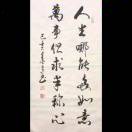 人生哪能多如意
萬事但求半稱心